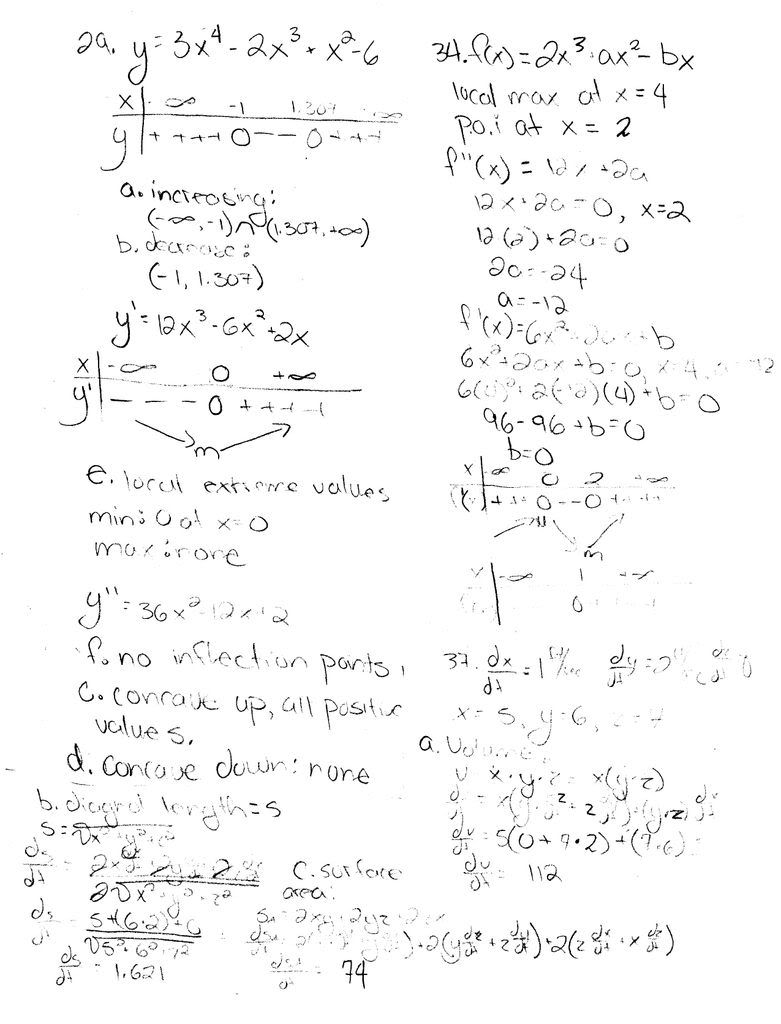 2a. y = 3x⁴ - 2x³ + x² - 6
x | -∞ -1 1.307 +∞
y | + + + + 0 — — 0 + + +
a. increasing:
(-∞, -1) ∩ (1.307, +∞)
b. decrease:
(-1, 1.307)
y' = 12x³ - 6x² + 2x
x | -∞ 0 +∞
y' | — — — — 0 + + + +
m
e. local extreme values
min: 0 at x = 0
max: none
y'' = 36x² - 12x + 2
f. no inflection points,
c. concave up, all positive
values.
d. concave down: none
34. f(x) = 2x³ + ax² - bx
local max at x = 4
p.o.i at x = 2
f''(x) = 12x + 2a
12x + 2a = 0, x = 2
12(2) + 2a = 0
2a = -24
a = -12
f'(x) = 6x² + 2ax + b
6x² + 2ax + b = 0, x = 4, a = -12
6(4)² + 2(-12)(4) + b = 0
96 - 96 + b = 0
b = 0
x | -∞ 0 2 +∞
+ + 0 - - 0 + + + +
m
x | -∞ 1 +∞
0
37. dx/dt = 1 dy/dt = 2
x = 5, y = 6, z = 7
a. Volume:
V x · y · z = x(y · z)
dv/dt = 5(0 + 7 · 2) + (7 · 6)
dv/dt = 112
b. diagnol length = s
s = √x² + y² + z²
ds/dt =
2√x² + y² + z²
ds/dt = 5 + (6 · 2) + 0
√5² + 6² + 7²
ds/dt = 1.621
c. surface
area:
SA = 2xy + 2yz + 2zx
+ 2(y dz/dt + z dy/dt) + 2(z dx/dt + x dz/dt)
74